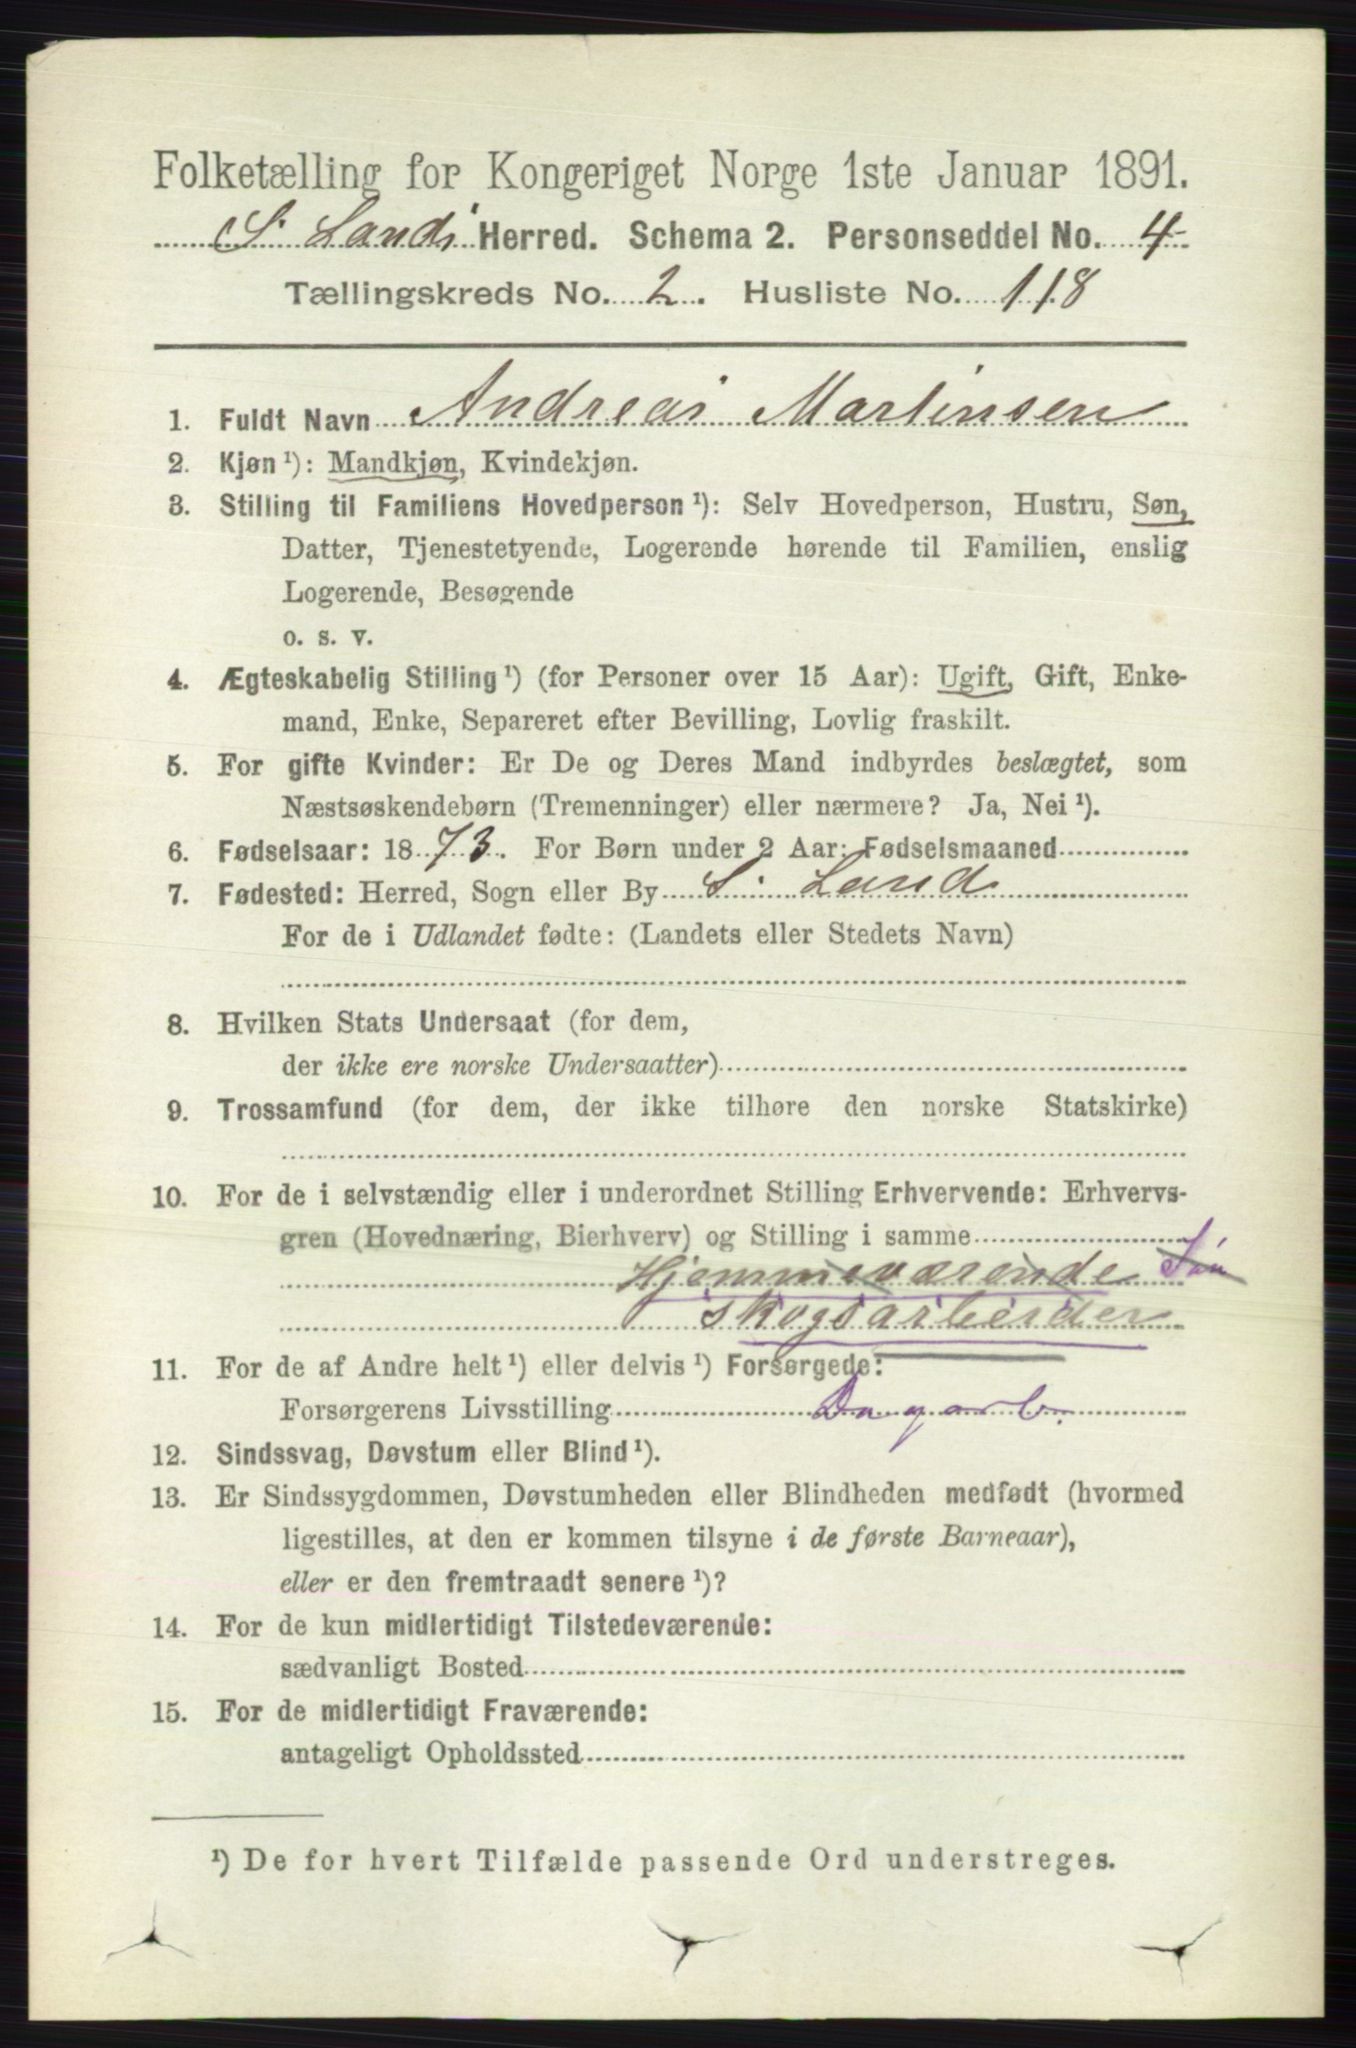 Folketælling for Kongeriget Norge 1ste Januar 1891.
S. Lands Herred. Schema 2. Personseddel No. 4
Tællingskreds No. 2. Husliste No. 118
1. Fuldt Navn Andreas Martinsen
2. Kjøn ¹): Mandkjøn, Kvindekjøn.
3. Stilling til Familiens Hovedperson ¹): Selv Hovedperson, Hustru, Søn,
Datter, Tjenestetyende, Logerende hørende til Familien, enslig
Logerende, Besøgende
o. s. v.
4. Ægteskabelig Stilling ¹) (for Personer over 15 Aar): Ugift, Gift, Enke-
mand, Enke, Separeret efter Bevilling, Lovlig fraskilt.
5. For gifte Kvinder: Er De og Deres Mand indbyrdes beslægtet, som
Næstsøskendebørn (Tremenninger) eller nærmere? Ja, Nei ¹).
6. Fødselsaar: 1873. For Børn under 2 Aar: Fødselsmaaned
7. Fødested: Herred, Sogn eller By S. Land
For de i Udlandet fødte: (Landets eller Stedets Navn)
8. Hvilken Stats Undersaat (for dem,
der ikke ere norske Undersaatter)
9. Trossamfund (for dem, der ikke tilhøre den norske Statskirke)
10. For de i selvstændig eller i underordnet Stilling Erhvervende: Erhvervs-
gren (Hovednæring, Bierhverv) og Stilling i samme
Hjemmeværende Søn
skogsarbeider
11. For de af Andre helt ¹) eller delvis ¹) Forsørgede:
Forsørgerens Livsstilling Dagarb.
12. Sindssvag, Døvstum eller Blind ¹).
13. Er Sindssygdommen, Døvstumheden eller Blindheden medfødt (hvormed
ligestilles, at den er kommen tilsyne i de første Barneaar),
eller er den fremtraadt senere ¹)?
14. For de kun midlertidigt Tilstedeværende:
sædvanligt Bosted
15. For de midlertidigt Fraværende:
antageligt Opholdssted
¹) De for hvert Tilfælde passende Ord understreges.